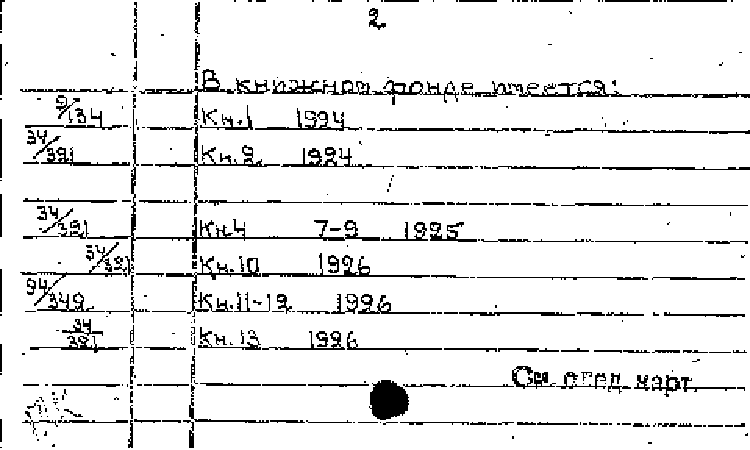 2
В книжном фонде имеется:
9/134 Кн.1 1924
34/391 Кн.2 1924
34/391 Кн.4 7-9 1925
34/391 Кн.10 1926
94/349 Кн.11-12 1926
34/391 Кн.13 1926
См. след. карт.